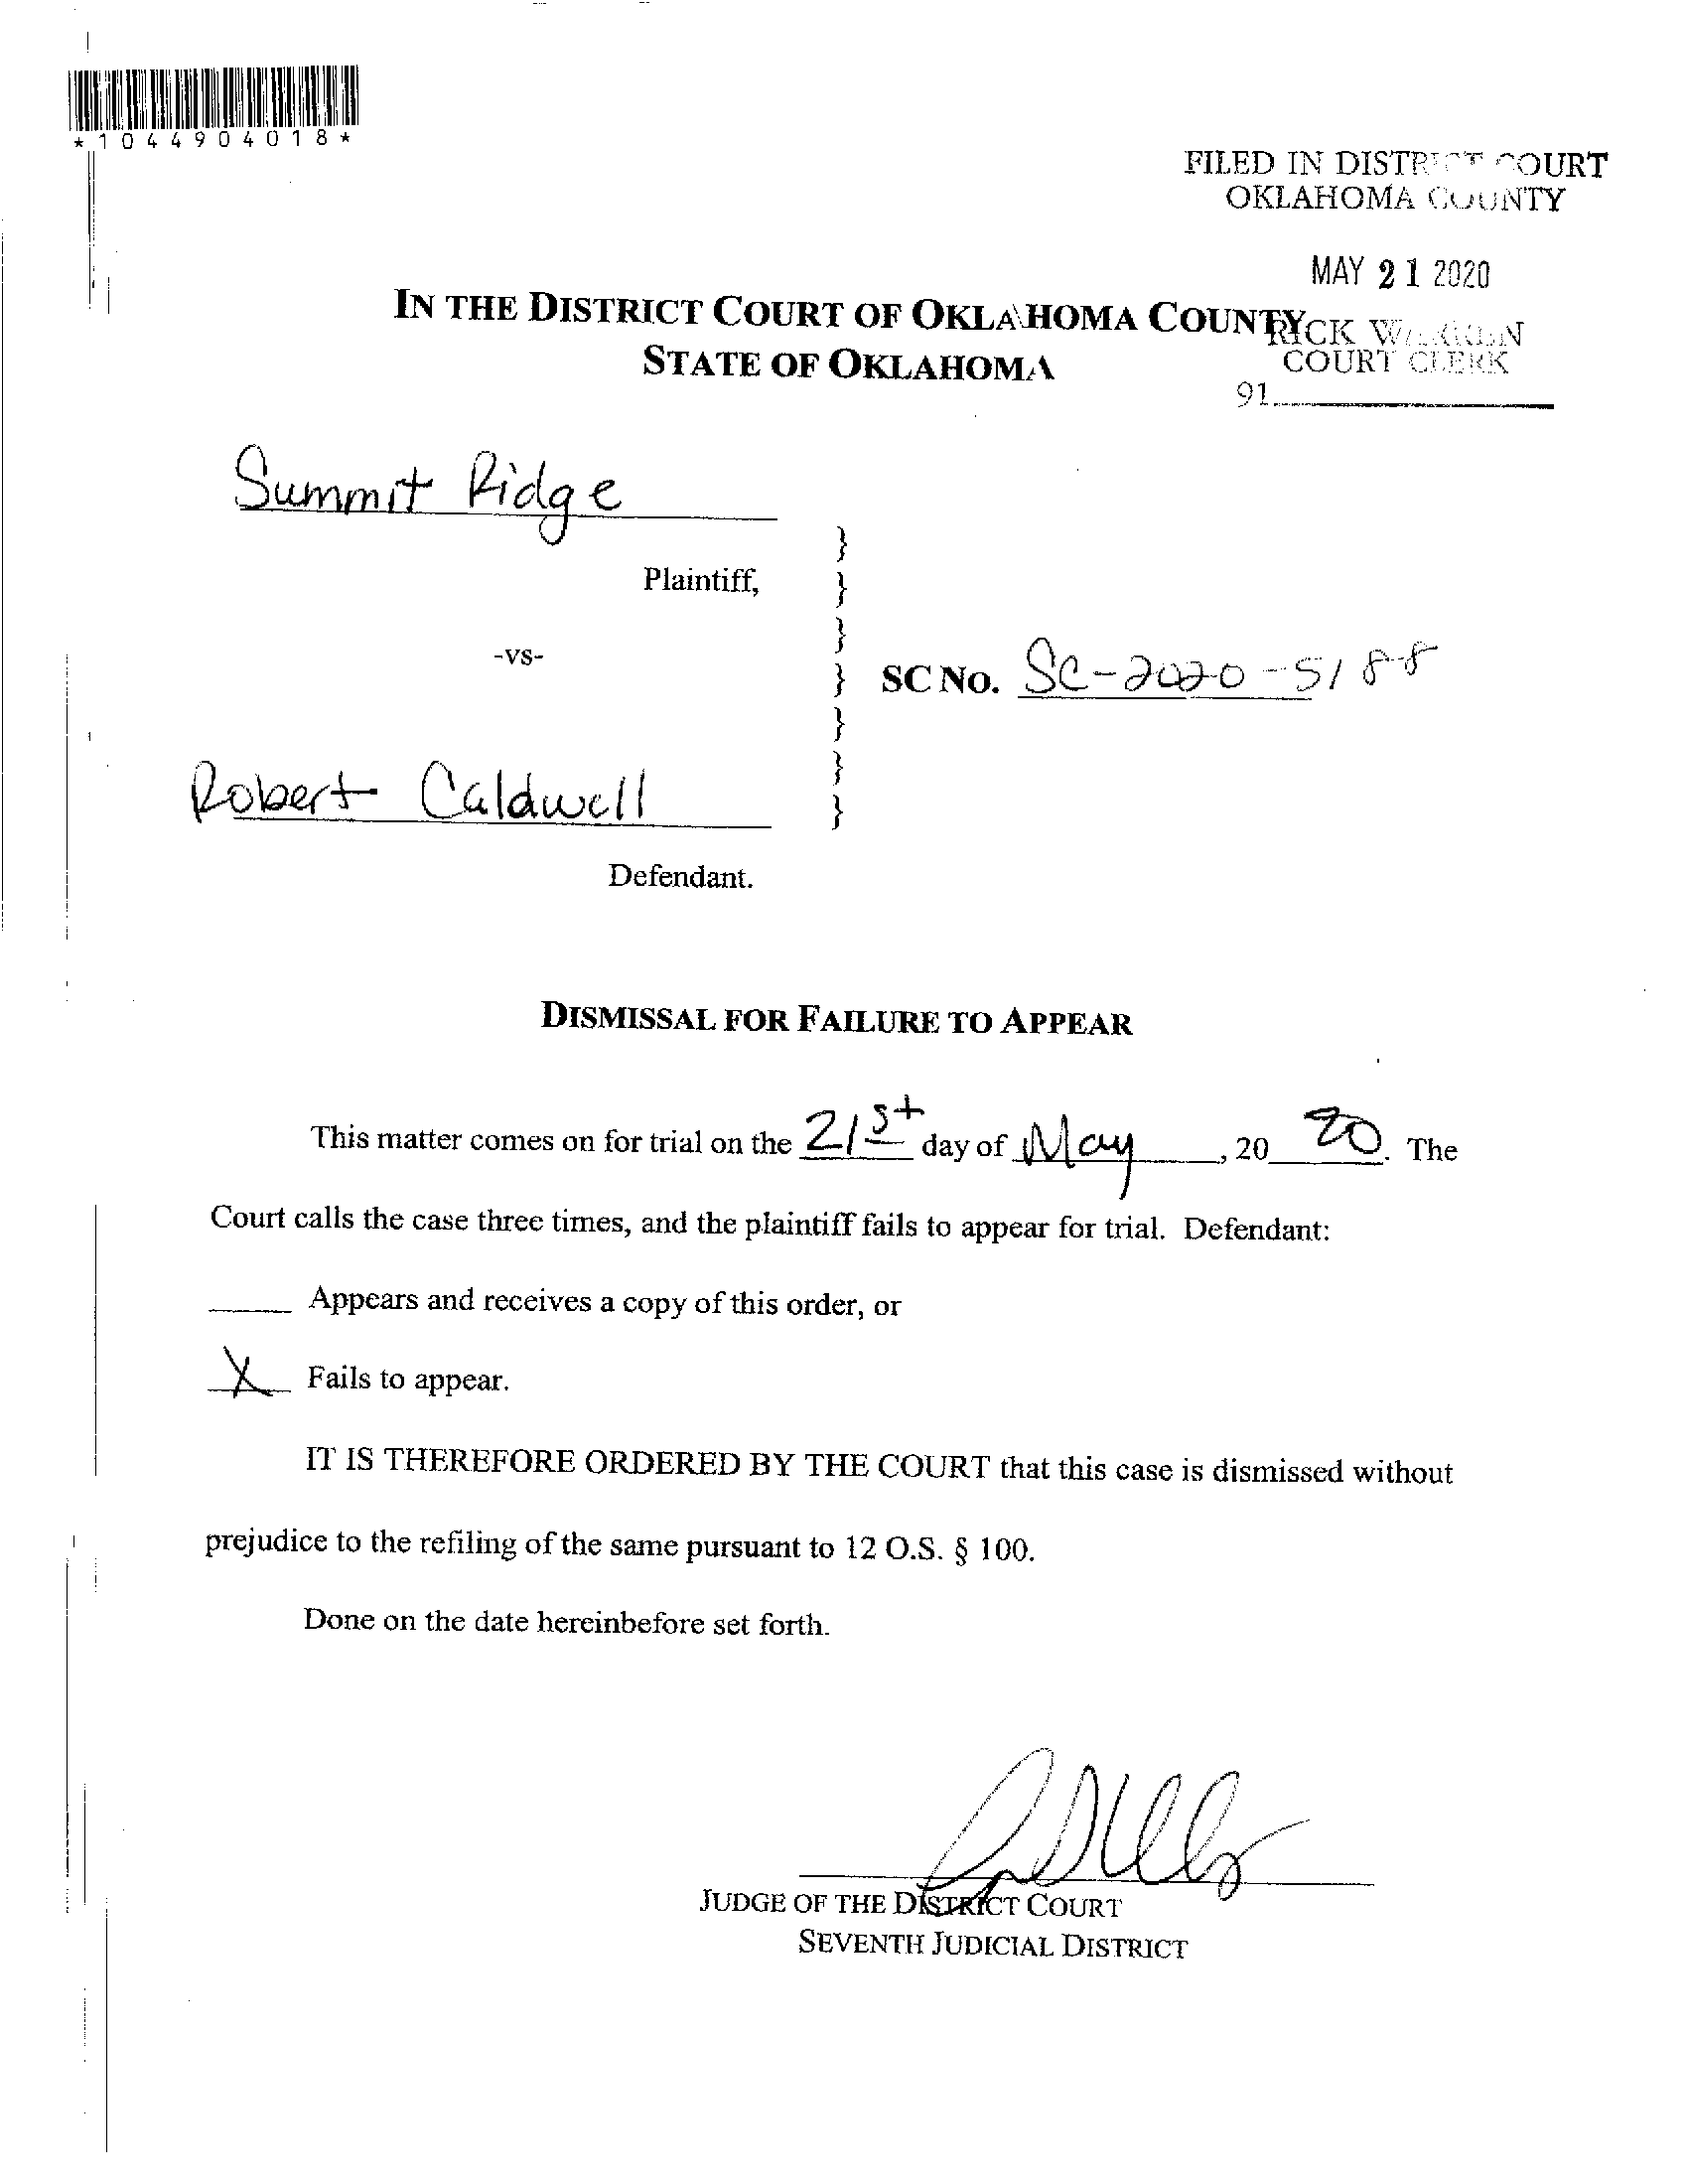 *1044904018*
FILED IN DISTRICT COURT
OKLAHOMA COUNTY
MAY 21 2020
IN THE DISTRICT COURT OF OKLAHOMA COUNTY
RICK WARREN
STATE OF OKLAHOMA
COURT CLERK
91
Summit Ridge
Plaintiff,
-vs-
SC NO. SC-2020-5188
Robert Caldwell
Defendant.
DISMISSAL FOR FAILURE TO APPEAR
This matter comes on for trial on the 21st day of May, 20 20. The
Court calls the case three times, and the plaintiff fails to appear for trial. Defendant:
Appears and receives a copy of this order, or
X Fails to appear.
IT IS THEREFORE ORDERED BY THE COURT that this case is dismissed without
prejudice to the refiling of the same pursuant to 12 O.S. § 100.
Done on the date hereinbefore set forth.
JUDGE OF THE DISTRICT COURT
SEVENTH JUDICIAL DISTRICT